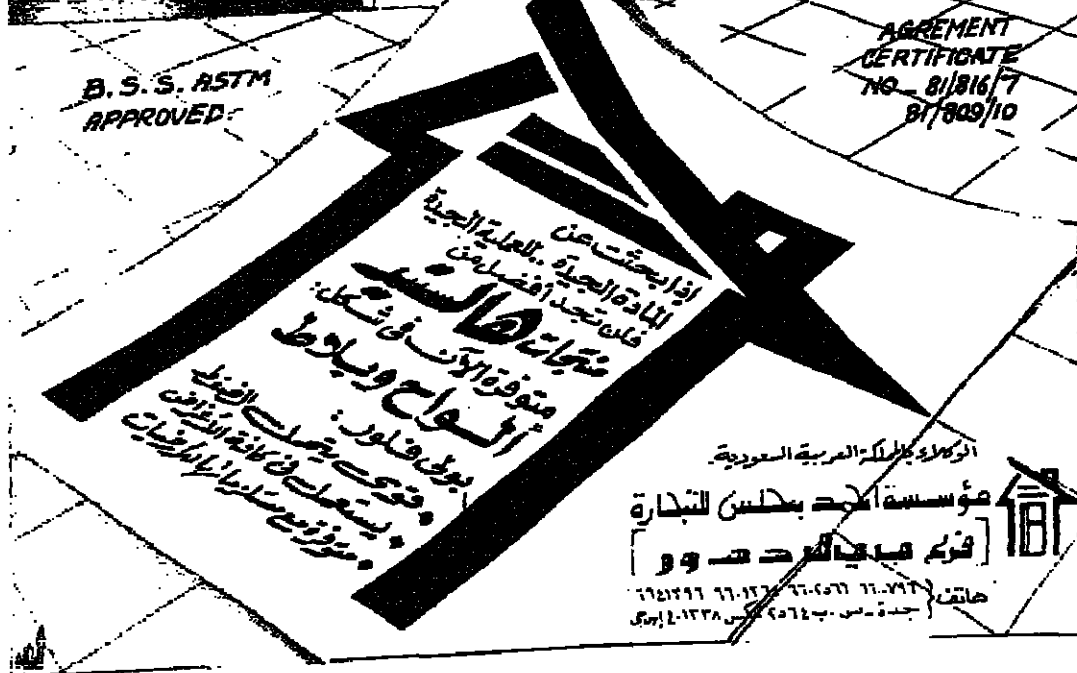 B.S.S. ASTM
APPROVED:
AGREMENT
CERTIFICATE
NO - 81/816/7
81/809/10
إذا بحثت عن
المادة الجيدة .. للعملية الجيدة
فلن تجد أفضل من
منتجات هالستد
متوفرة الآن في شكل:
ألواح وبلاط
بولي فلور:
• قوي يتحمل الضغط
• يستعمل في كافة الأغراض
• متوفرة مع مستلزماتها للأرضيات
الوكلاء بالمملكة العربية السعودية
مؤسسة أحمد بحلس للتجارة
هاتف
جدة - س.ب ٢٥٦٤